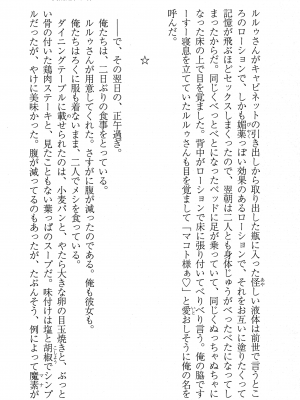 ルルゥさんがキャビネットの引き出しから取り出した瓶に入った怪しい液体は前世で言うとこ
ろのローションで、しかも媚薬っぽい効果のあるローションで、それをお互いに塗りたくって
記憶が飛ぶほどセックスしまくったので、翌朝は二人とも身体じゅうがべったべたになってし
まったからだ。同じくべっとべとになったベッドに足が乗っていて、同じくぬっちゃぬちゃに
なった床の上で目を覚ました。背中がローションで床に張り付いてべりべり言う。俺の脇です
ーすー寝息を立てていたルルゥさんも目を覚まして「マコト様ぁ♡」と愛おしそうに俺の名を
呼んだ。
☆
――で、その翌日の、正午過ぎ。
俺たちは、二日ぶりの食事をとっている。
ルルゥさんが用意してくれた。さすがに腹が減ったのである。俺も彼女も。
俺たちはろくに服も着ないまま、二人でメシを食っている。
ダイニングテーブルに載せられたのは、小麦パンと、やたら大きな卵の目玉焼きと、ぶっと
い骨の付いた鶏肉ステーキと、見たこともない葉っぱのスープだ。味付けは塩と胡椒でシンプ
ルだったが、やけに美味かった。腹が減ってるのもあったが、たぶんそう、例によって魔素が